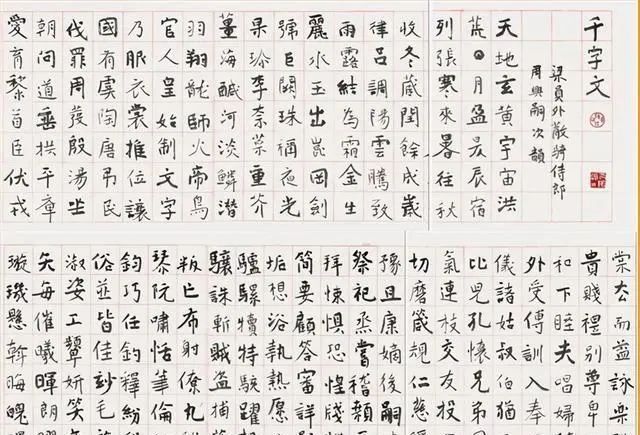 千字文
梁員外散騎侍郎
周興嗣次韻
天地玄黃宇宙洪
荒日月盈昃辰宿
列張寒來暑往秋
收冬藏閏餘成歲
律呂調陽雲騰致
雨露結為霜金生
麗水玉出崑岡劍
號巨闕珠稱夜光
果珍李柰菜重芥
薑海鹹河淡鱗潛
羽翔龍師火帝鳥
官人皇始制文字
乃服衣裳推位讓
國有虞陶唐弔民
伐罪周發殷湯坐
朝問道垂拱平章
愛育黎首臣伏戎
棠去而益詠樂
貴賤禮別尊卑
和下睦夫唱婦
外受傅訓入奉
儀諸姑叔伯猶
比兒孔懷兄弟
氣連枝交友投
切磨箴規仁慈
豫且康嫡後嗣
祭祀烝嘗稽顙
拜悚懼恐惶牋
簡要顧答審詳
垢想浴執熱願
驢騾犢特駭躍
驤誅斬賊盜捕
叛亡布射僚丸
琴阮嘯恬筆倫
鈞巧任釣釋紛
俗並皆佳妙毛
淑姿工顰妍笑
矢每催曦暉朗
璇璣懸斡晦魄